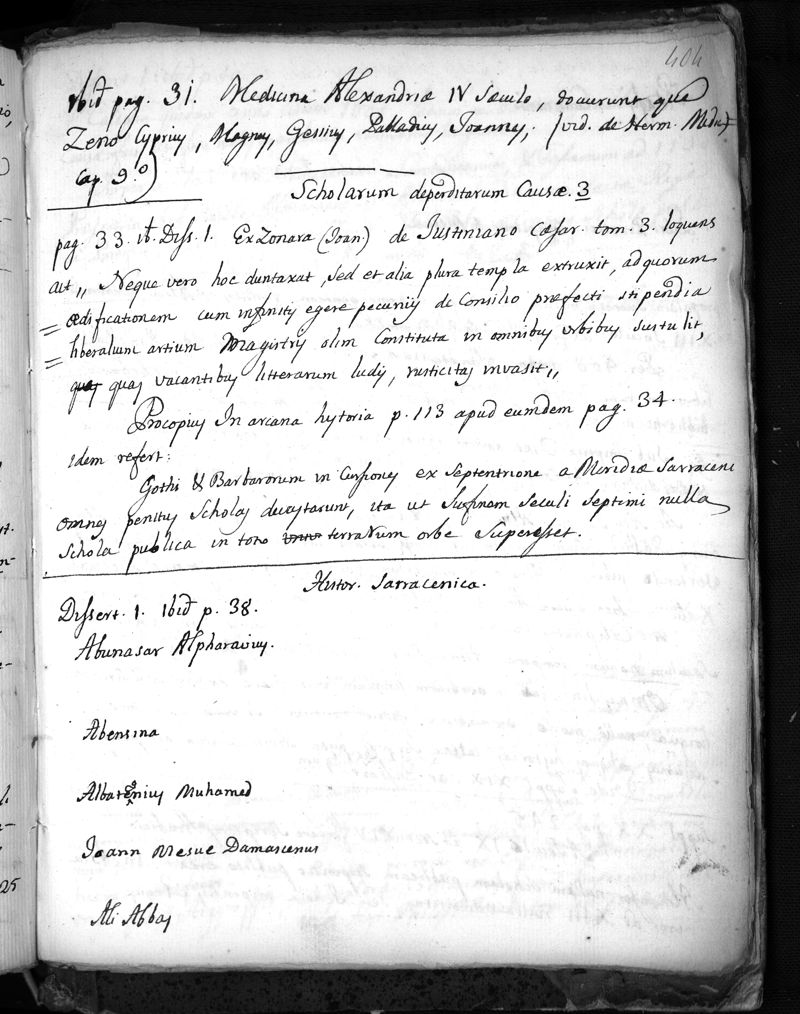 404
ibid pag. 31. Medicina Alexandriæ IV Sæculo, docuerunt quæ
Zeno Cyprius, Magnus, Gessius, Palladius, Joannes, (vid. de Herm. Medic.
Cap. 9.º)
Scholarum deperditarum Causæ. 3
pag. 33. ib. Diss. 1. Ex Zonara (Joan) de Justiniano Cæsar. tom. 3. loquens
ait „ Neque vero hoc duntaxat, sed et alia plura templa extruxit, ad quorum
= ædificationem cum infinitis egere pecuniis de Consilio præfecti stipendia
= liberalium artium Magistris olim Constituta in omnibus urbibus sustulit,
quas quas vacantibus litterarum ludis, rusticitas invasit „
Procopius In arcana hystoria p. 113 apud eumdem pag. 34.
idem refert:
Gothi & Barbarorum in Cursiones ex Septentrione a Meridiæ Sarraceni
omnes penitus Scholas devastarunt, ita ut Sufinem seculi septimi nulla
schola publica in toto terrarum orbe Superesset.
Histor. Sarracenica.
Dissert. 1. ibid p. 38.
Abunasar Alpharavius.
Abensina
Albatenius Muhamed
Joann Mesue Damascenus
Ali Abbas